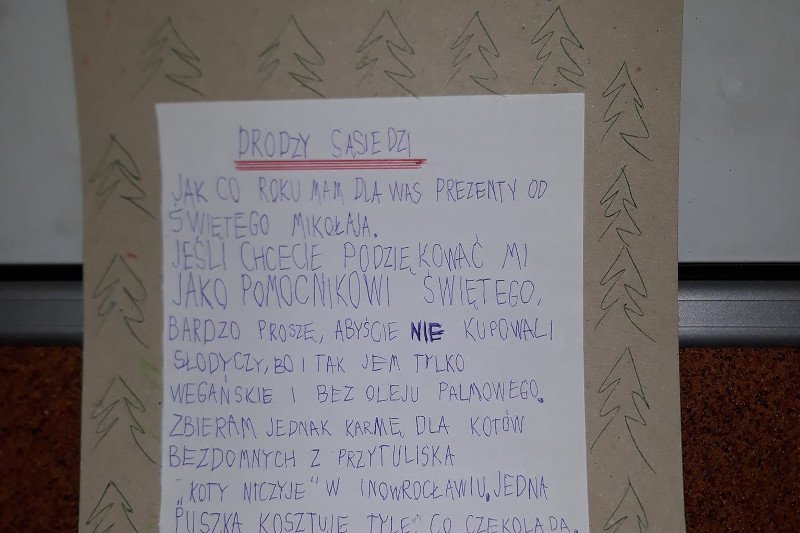 DRODZY SĄSIEDZI
JAK CO ROKU MAM DLA WAS PREZENTY OD
ŚWIĘTEGO MIKOŁAJA.
JEŚLI CHCECIE PODZIĘKOWAĆ MI
JAKO POMOCNIKOWI ŚWIĘTEGO,
BARDZO PROSZĘ, ABYŚCIE NIE KUPOWALI
SŁODYCZY, BO I TAK JEM TYLKO
WEGAŃSKIE I BEZ OLEJU PALMOWEGO.
ZBIERAM JEDNAK KARMĘ DLA KOTÓW
BEZDOMNYCH Z PRZYTULISKA
„KOTY NICZYJE" W INOWROCŁAWIU. JEDNA
PUSZKA KOSZTUJE TYLE, CO CZEKOLADA.